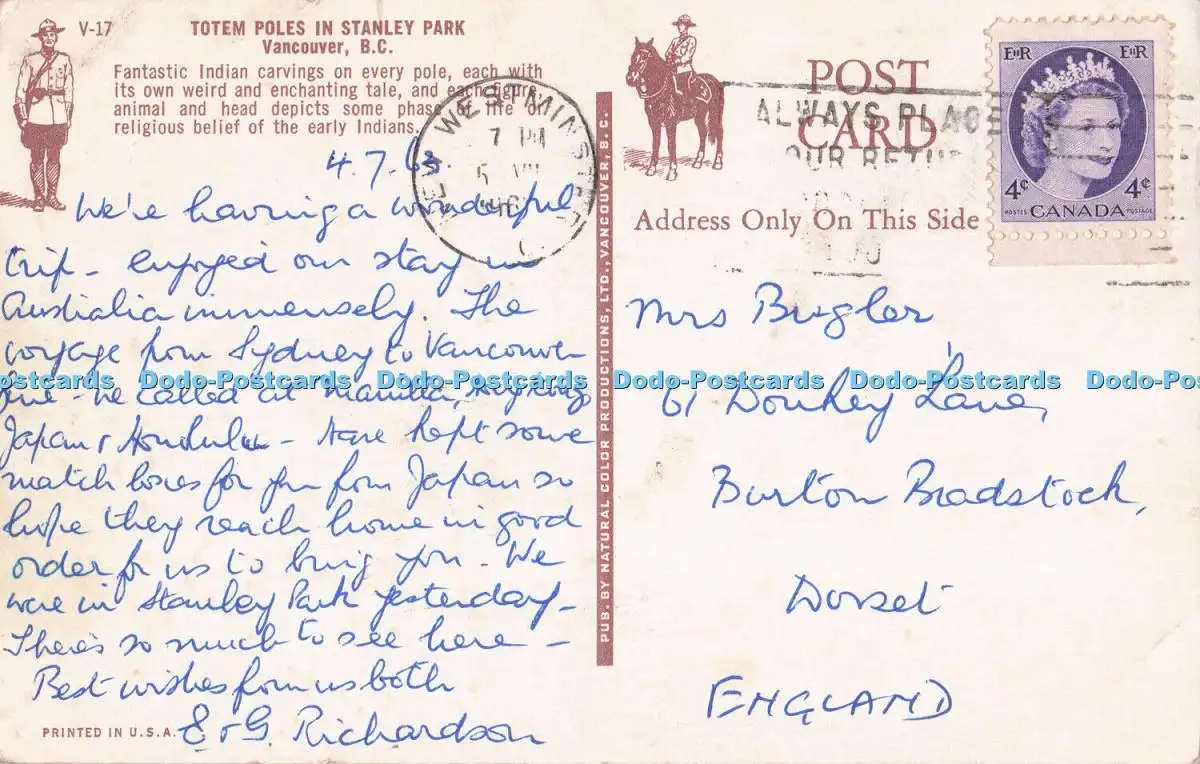 V-17
TOTEM POLES IN STANLEY PARK
Vancouver, B.C.
Fantastic Indian carvings on every pole, each with
its own weird and enchanting tale, and each figure,
animal and head depicts some phase life or
religious belief of the early Indians.
4.7.
We're having a wonderful
trip - enjoyed our stay in
Australia immensely. The
voyage from Sydney to Vancouver
fine - we called at Manilla, Hong Kong
Japan & Honolulu - Have kept some
match boxes for you from Japan so
hope they reach home in good
order for us to bring you. We
were in Stanley Park yesterday -
There's so much to see here -
Best wishes from us both
E & G. Richardson
PRINTED IN U.S.A.
PUB. BY NATURAL COLOR PRODUCTIONS, LTD., VANCOUVER, B.C.
NEW WESTMINSTER
7 PM
5
POST
CARD
ALWAYS PLACE
OUR RETU
Address Only On This Side
EIIR EIIR
4¢ 4¢
POSTES CANADA POSTAGE
Mrs Bugler
61 Donkey Lane,
Burton Bradstock,
Dorset
ENGLAND
Dodo-Postcards Dodo-Postcards Dodo-Postcards Dodo-Postcards Dodo-Postcards Dodo-Post